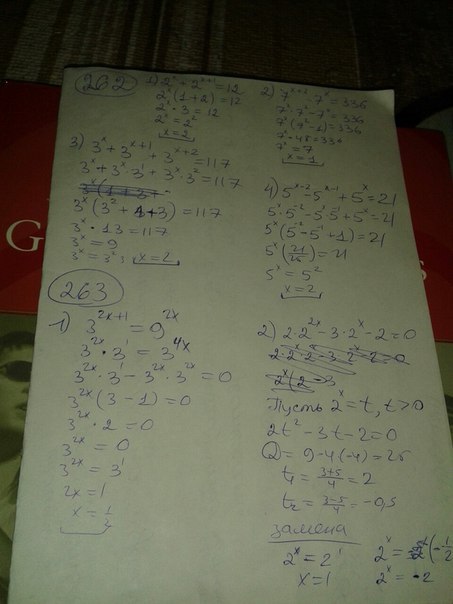 262
1) 2^x + 2^(x+1) = 12
2^x (1+2) = 12
2^x · 3 = 12
2^x = 2^2
x = 2
2) 7^(x+2) - 7^x = 336
7^x · 7^2 - 7^x = 336
7^x (7^2 - 1) = 336
7^x · 48 = 336
7^x = 7
x = 1
3) 3^x + 3^(x+1) + 3^(x+2) = 117
3^x + 3^x · 3^1 + 3^x · 3^2 = 117
3^x (3^2 + 1 + 3) = 117
3^x · 13 = 117
3^x = 9
3^x = 3^2; x = 2
4) 5^(x-2) - 5^(x-1) + 5^x = 21
5^x · 5^-2 - 5^x · 5^-1 + 5^x = 21
5^x (5^-2 - 5^-1 + 1) = 21
5^x (21/25) = 21
5^x = 5^2
x = 2
263
1) 3^(2x+1) = 9^(2x)
3^(2x) · 3^1 = 3^(4x)
3^(2x) · 3^1 - 3^(2x) · 3^(2x) = 0
3^(2x) (3 - 1) = 0
3^(2x) · 2 = 0
3^(2x) = 0
3^(2x) = 3^1
2x = 1
x = 1/2
2) 2 · 2^(2x) - 3 · 2^x - 2 = 0
Пусть 2^x = t, t > 0
2t^2 - 3t - 2 = 0
D = 9 - 4(-4) = 25
t1 = (3+5)/4 = 2
t2 = (3-5)/4 = -0,5
замена
2^x = 2^1
x = 1
2^x = (-1/2
2^x = -2
G
S